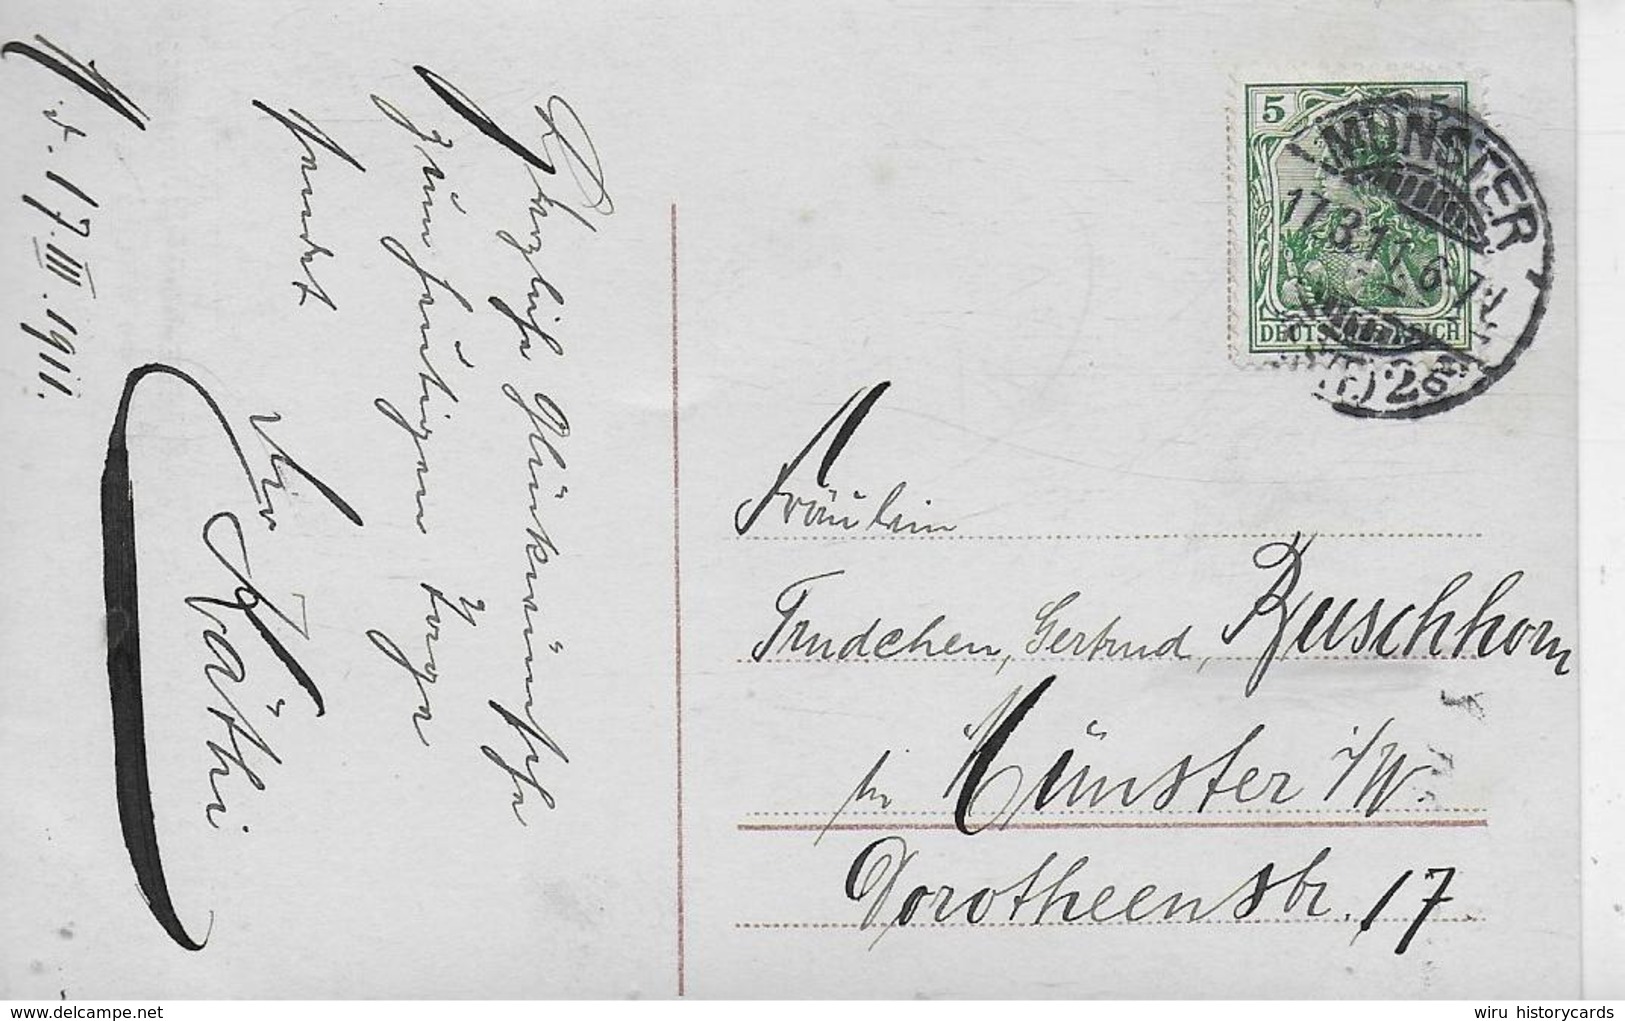 Herzliche Glückwünsche
zum heutigen Tage
sendet
Käthi
M. d. 17. III. 1911.
5
5
DEUTSCHES REICH
MÜNSTER
17.3.11. 6-7N.
(WESTF.) 2
Fräulein
Trudchen, Gertrud, Buschhorn
in Münster i/W.
Dorotheenstr. 17.
wiru historycards
www.delcampe.net